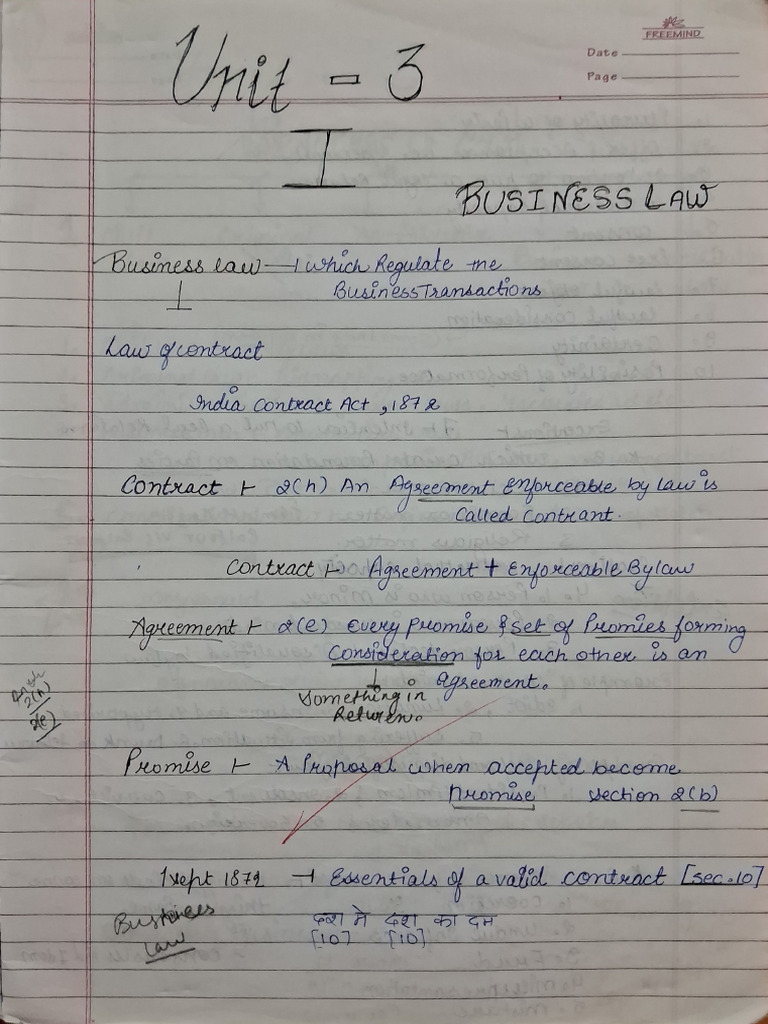 FREEMIND
Date
Page
Unit - 3
I
BUSINESS LAW
Business law → which Regulate the
Business Transactions
Law of contract
India Contract Act, 1872
Contract :- 2(h) An Agreement Enforceable by law is
Called Contrant.
Contract :- Agreement + Enforceable By law
Agreement :- 2(e) Every Promise & Set of Promies forming
Consideration for each other is an
Agreement.
Something in
Return.
2(h)
2(e)
Promise :- A Proposal when accepted become
Promise section 2(b)
1 sept 1872 → Essentials of a valid contract [sec.10]
दश मे दश का दम
[10] [10]
Law